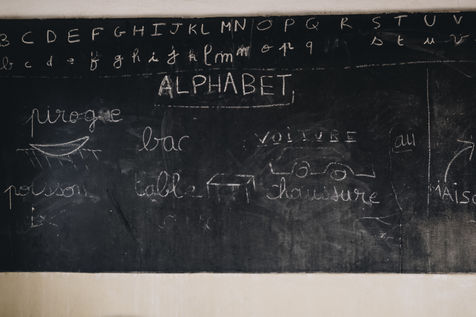 B C D E F G H I J K L M N O P Q R S T U V
b c d e f g h i j k l m n o p q s t u v
ALPHABET
pirogue bac VOITURE au
poisson table chaussure